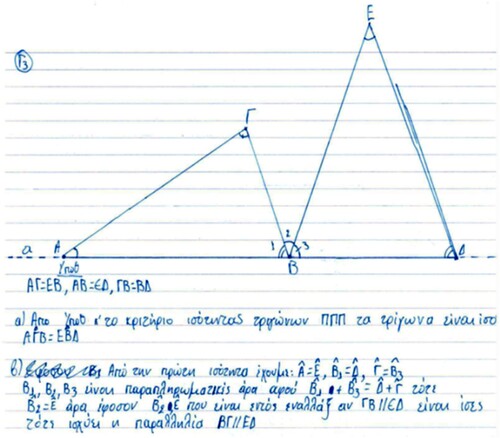 Γ3
Ε
Γ
2
1
3
α
Α
Β
Δ
Υποθ
ΑΓ=ΕΒ, ΑΒ=ΕΔ, ΓΒ=ΒΔ
α) Απο Υποθ κ' το κριτήριο ισότητας τριγώνων ΠΠΠ τα τρίγωνα είναι ίσα
ΑΓΒ = ΕΒΔ
β) Από την πρώτη ισότητα έχουμε: Α̂=Ε̂, Β̂1=Δ̂, Γ̂=Β̂3
Β̂1, Β̂2, Β3 είναι παραπληρωματικές άρα αφού Β̂1 + Β̂3 = Δ̂+Γ̂ τότε
Β̂2=Ε άρα εφοσον Β̂2, Ε̂ που είναι εντός εναλλάξ αν ΓΒ//ΕΔ είναι ίσες
τότε ισχύει η παραλληλία ΒΓ//ΕΔ